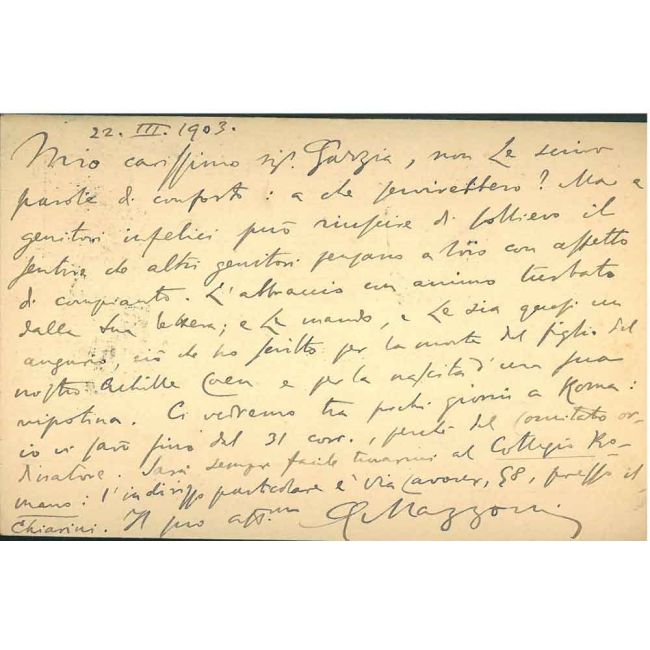 22. III. 1903.
Mio carissimo sig. Garzia, non Le scrivo
parole di conforto: a che servirebbero? Ma a
genitori infelici può riuscire di sollievo il
sentire che altri genitori pensano a loro con affetto
di compianto. L'abbraccio con animo turbato
dalla Sua lettera; e Le mando, e Le sia quasi un
augurio, ciò che ho scritto per la morte del figlio del
nostro Achille Coen e per la nascita d'una sua
nipotina. Ci vedremo tra pochi giorni a Roma:
io vi sarò fino dal 31 corr., perché del Comitato or-
dinatore. Sarà sempre facile trovarmi al Collegio Ro-
mano: l'indirizzo particolare è via Cavour, 58, presso il
Chiarini. Il suo aff.mo G Mazzoni